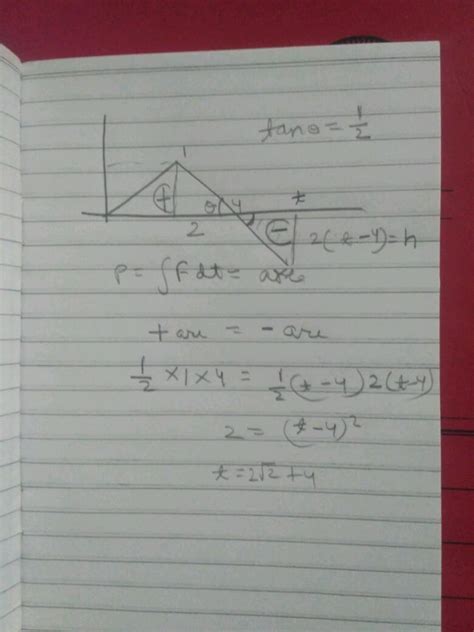 tanθ = 1/2
1
+ θ 4 t
2 − 2(t-4)=h
P = ∫Fdt = are
+ are = - are
1/2 ×1×4 = 1/2 (t-4) 2(t-4)
2 = (t-4)²
t=2√2+4